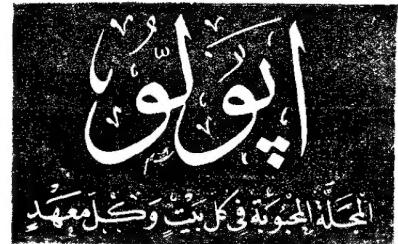 اپولّو
المجَلّة المحْبُوبَة فى كل بَيْتٍ وَكُلّ مَعهَدٍ